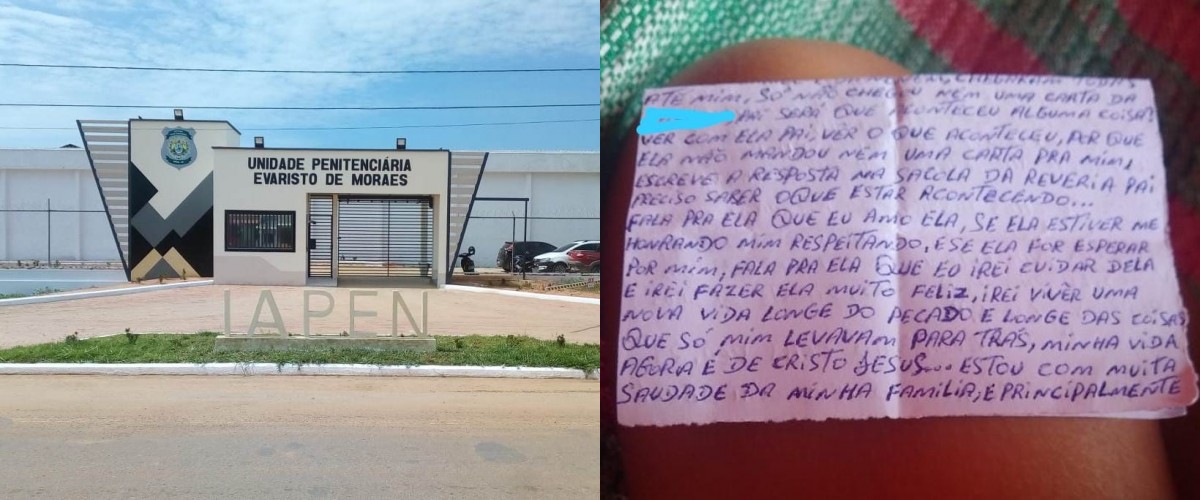 UNIDADE PENITENCIÁRIA
EVARISTO DE MORAES
IAPEN
TÉ MIM, SÓ NÃO CHEGOU NEM UMA CARTA DA
PAI SERÁ QUE ACONTECEU ALGUMA COISA?
VER COM ELA PAI, VER O QUE ACONTECEU, POR QUE
ELA NÃO MANDOU NEM UMA CARTA PRA MIM,
ESCREVE A RESPOSTA NA SACOLA DA REVERIA PAI
PRECISO SABER OQUE ESTAR ACONTECENDO...
FALA PRA ELA QUE EU AMO ELA, SE ELA ESTIVER ME
HONRANDO MIM RESPEITANDO, ESE ELA FOR ESPERAR
POR MIM, FALA PRA ELA QUE EU IREI CUIDAR DELA
E IREI FAZER ELA MUITO FELIZ, IREI VIVER UMA
NOVA VIDA LONGE DO PECADO E LONGE DAS COISAS
QUE SÓ MIM LEVAVAM PARA TRÁS, MINHA VIDA
AGORA É DE CRISTO JESUS... ESTOU COM MUITA
SAUDADE DA MINHA FAMILIA, E PRINCIPALMENTE